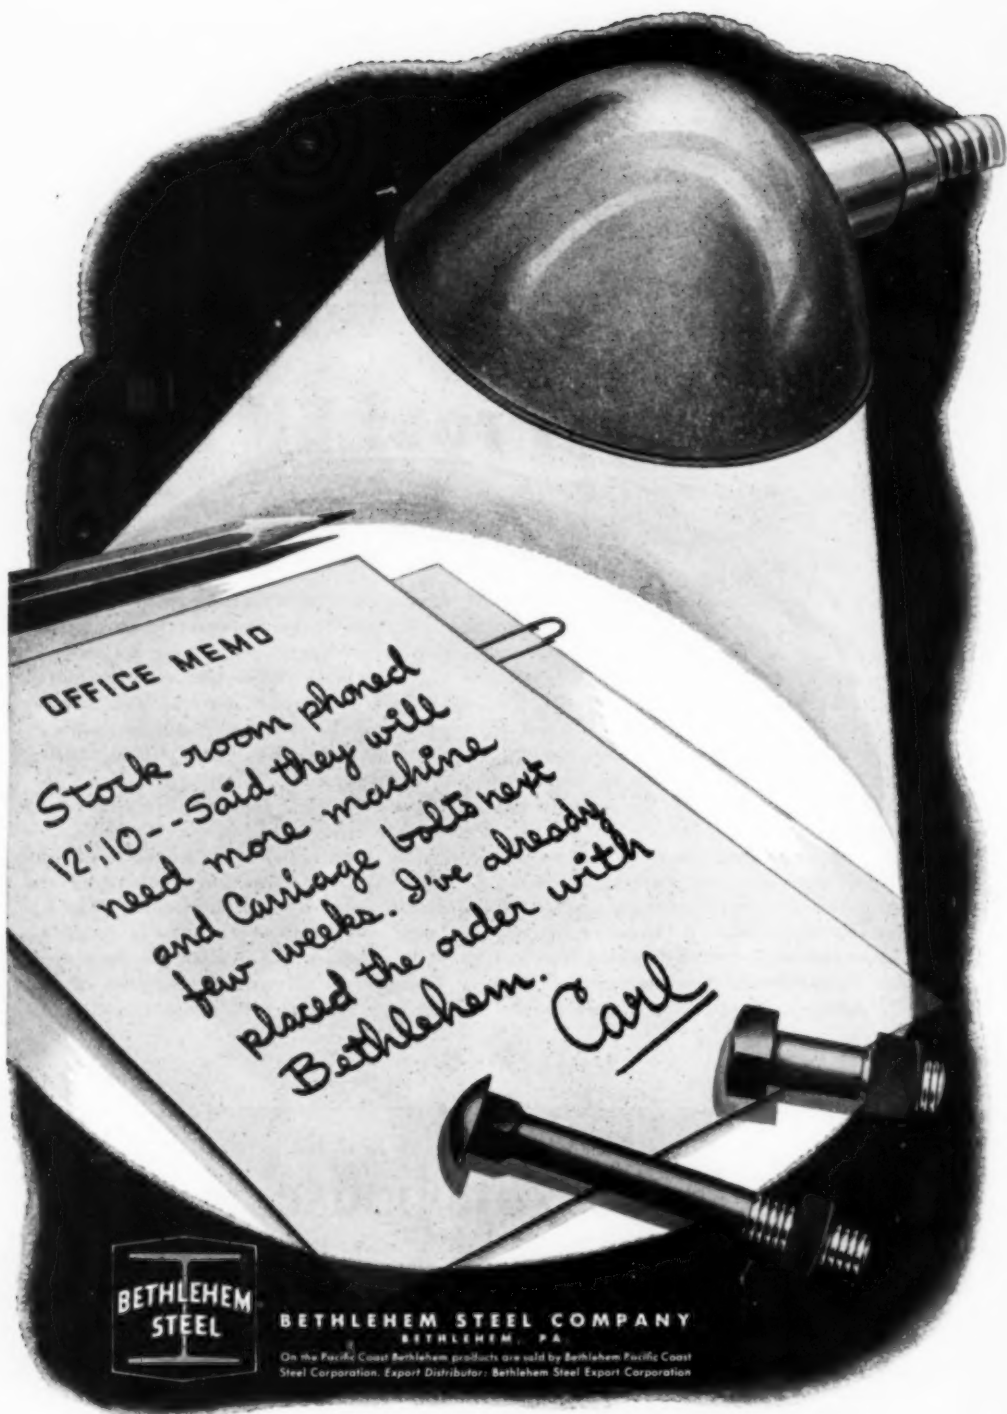 OFFICE MEMO
Stock room phoned
12:10--Said they will
need more machine
and Carriage bolts next
few weeks. I've already
placed the order with
Bethlehem.
Carl
BETHLEHEM
STEEL
BETHLEHEM STEEL COMPANY
BETHLEHEM, PA.
On the Pacific Coast Bethlehem products are sold by Bethlehem Pacific Coast
Steel Corporation. Export Distributor: Bethlehem Steel Export Corporation